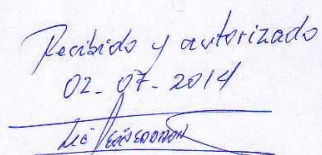 Recibido y autorizado
02-07-2014